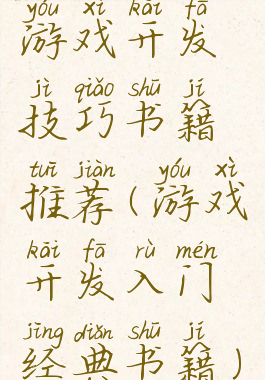 yóu xì kāi fā
游戏开发
jì qiǎo shū jí
技巧书籍
tuī jiàn yóu xì
推荐(游戏
kāi fā rù mén
开发入门
jīng diǎn shū jí
经典书籍)